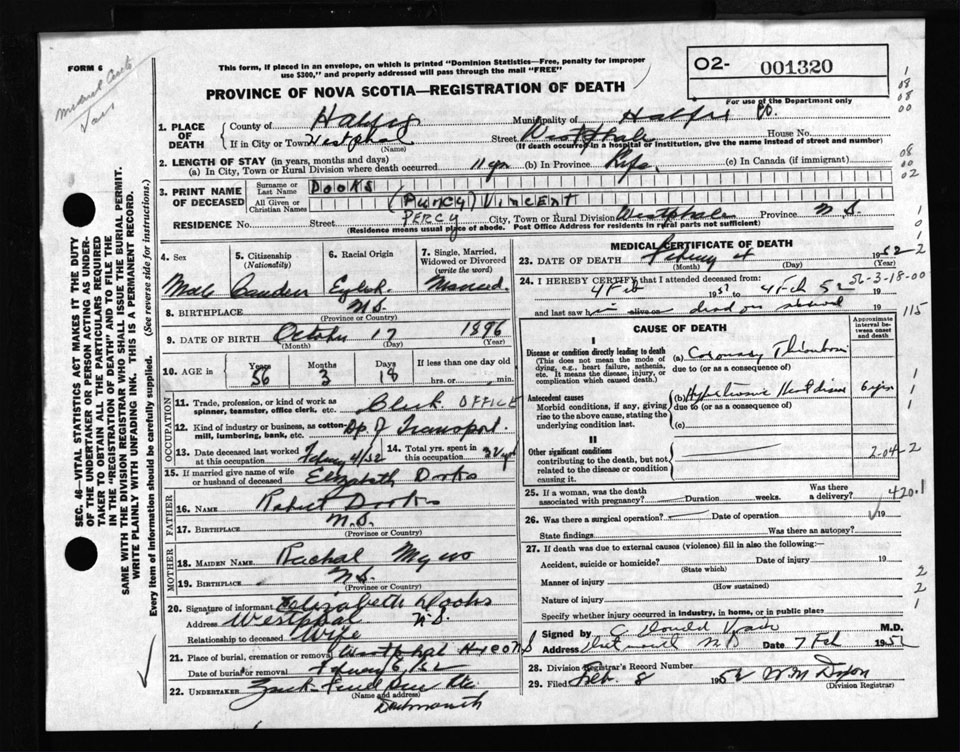 FORM 6
This form, if placed in an envelope, on which is printed "Dominion Statistics—Free, penalty for improper
use $300," and properly addressed will pass through the mail "FREE"
O2- 001320
For use of the Department only
PROVINCE OF NOVA SCOTIA—REGISTRATION OF DEATH
1. PLACE OF DEATH
County of Halifax Municipality of Halifax Co.
If in City or Town Westphal Street Westphal House No.
(Name) (If death occurred in a hospital or institution, give the name instead of street and number)
2. LENGTH OF STAY (in years, months and days)
(a) In City, Town or Rural Division where death occurred 11 yrs (b) In Province Life (c) In Canada (if immigrant)
3. PRINT NAME OF DECEASED
Surname or Last Name DOOKS
All Given or Christian Names (PURCY) VINCENT
PERCY
RESIDENCE No. Street City, Town or Rural Division Westphal Province N.S.
(Residence means usual place of abode. Post Office Address for residents in rural parts not sufficient)
4. Sex Male
5. Citizenship (Nationality)
6. Racial Origin
7. Single, Married, Widowed or Divorced (write the word) Married
8. BIRTHPLACE N.S.
(Province or Country)
9. DATE OF BIRTH October 17 1896
(Month) (Day) (Year)
10. AGE in Years 56 Months 3 Days 18 If less than one day old hrs. or min.
OCCUPATION
11. Trade, profession, or kind of work as spinner, teamster, office clerk, etc. Clerk OFFICE
12. Kind of industry or business, as cotton-mill, lumbering, bank, etc. Dp. of Transport.
13. Date deceased last worked at this occupation 4/52
14. Total yrs. spent in this occupation
15. If married give name of wife or husband of deceased Elizabeth Dooks
FATHER
16. NAME Robert Dooks
17. BIRTHPLACE N.S.
(Province or Country)
MOTHER
18. MAIDEN NAME Rachal
19. BIRTHPLACE N.S.
(Province or Country)
20. Signature of informant Elizabeth Dooks
Address Westphal N.S.
Relationship to deceased Wife
21. Place of burial, cremation or removal Westphal
Date of burial or removal 6/52
22. UNDERTAKER
(Name and address)
Dartmouth
MEDICAL CERTIFICATE OF DEATH
23. DATE OF DEATH 4 1952
(Month) (Day) (Year)
24. I HEREBY CERTIFY that I attended deceased from:
4 Feb 19 4 Feb 52 19
56-3-18-00
and last saw alive on dead on 19
115
CAUSE OF DEATH
Approximate interval between onset and death
I
Disease or condition directly leading to death
(This does not mean the mode of dying, e.g., heart failure, asthenia, etc. It means the disease, injury, or complication which caused death.)
(a) Coronary Thrombosis
due to (or as a consequence of)
Antecedent causes
Morbid conditions, if any, giving rise to the above cause, stating the underlying condition last.
(b) Hypertensive Heart disease
due to (or as a consequence of)
(c)
II
Other significant conditions
contributing to the death, but not related to the disease or condition causing it.
2-04-2
25. If a woman, was the death associated with pregnancy? Duration weeks. Was there a delivery?
420.1
26. Was there a surgical operation? Date of operation 19
State findings Was there an autopsy?
27. If death was due to external causes (violence) fill in also the following:—
Accident, suicide or homicide? Date of injury 19
(State which)
Manner of injury
(How sustained)
Nature of injury
Specify whether injury occurred in industry, in home, or in public place
Signed by M.D.
Address Date 7 Feb 195
28. Division Registrar's Record Number
29. Filed Feb. 8 1952 W M Dixon
(Division Registrar)
SEC. 46—VITAL STATISTICS ACT MAKES IT THE DUTY
OF THE UNDERTAKER OR PERSON ACTING AS UNDER-
TAKER TO OBTAIN ALL THE PARTICULARS REQUIRED
IN THE "REGISTRATION OF DEATH" AND TO FILE THE
SAME WITH THE DIVISION REGISTRAR WHO SHALL ISSUE THE BURIAL PERMIT.
WRITE PLAINLY WITH UNFADING INK. THIS IS A PERMANENT RECORD.
Every item of information should be carefully supplied. (See reverse side for instructions.)